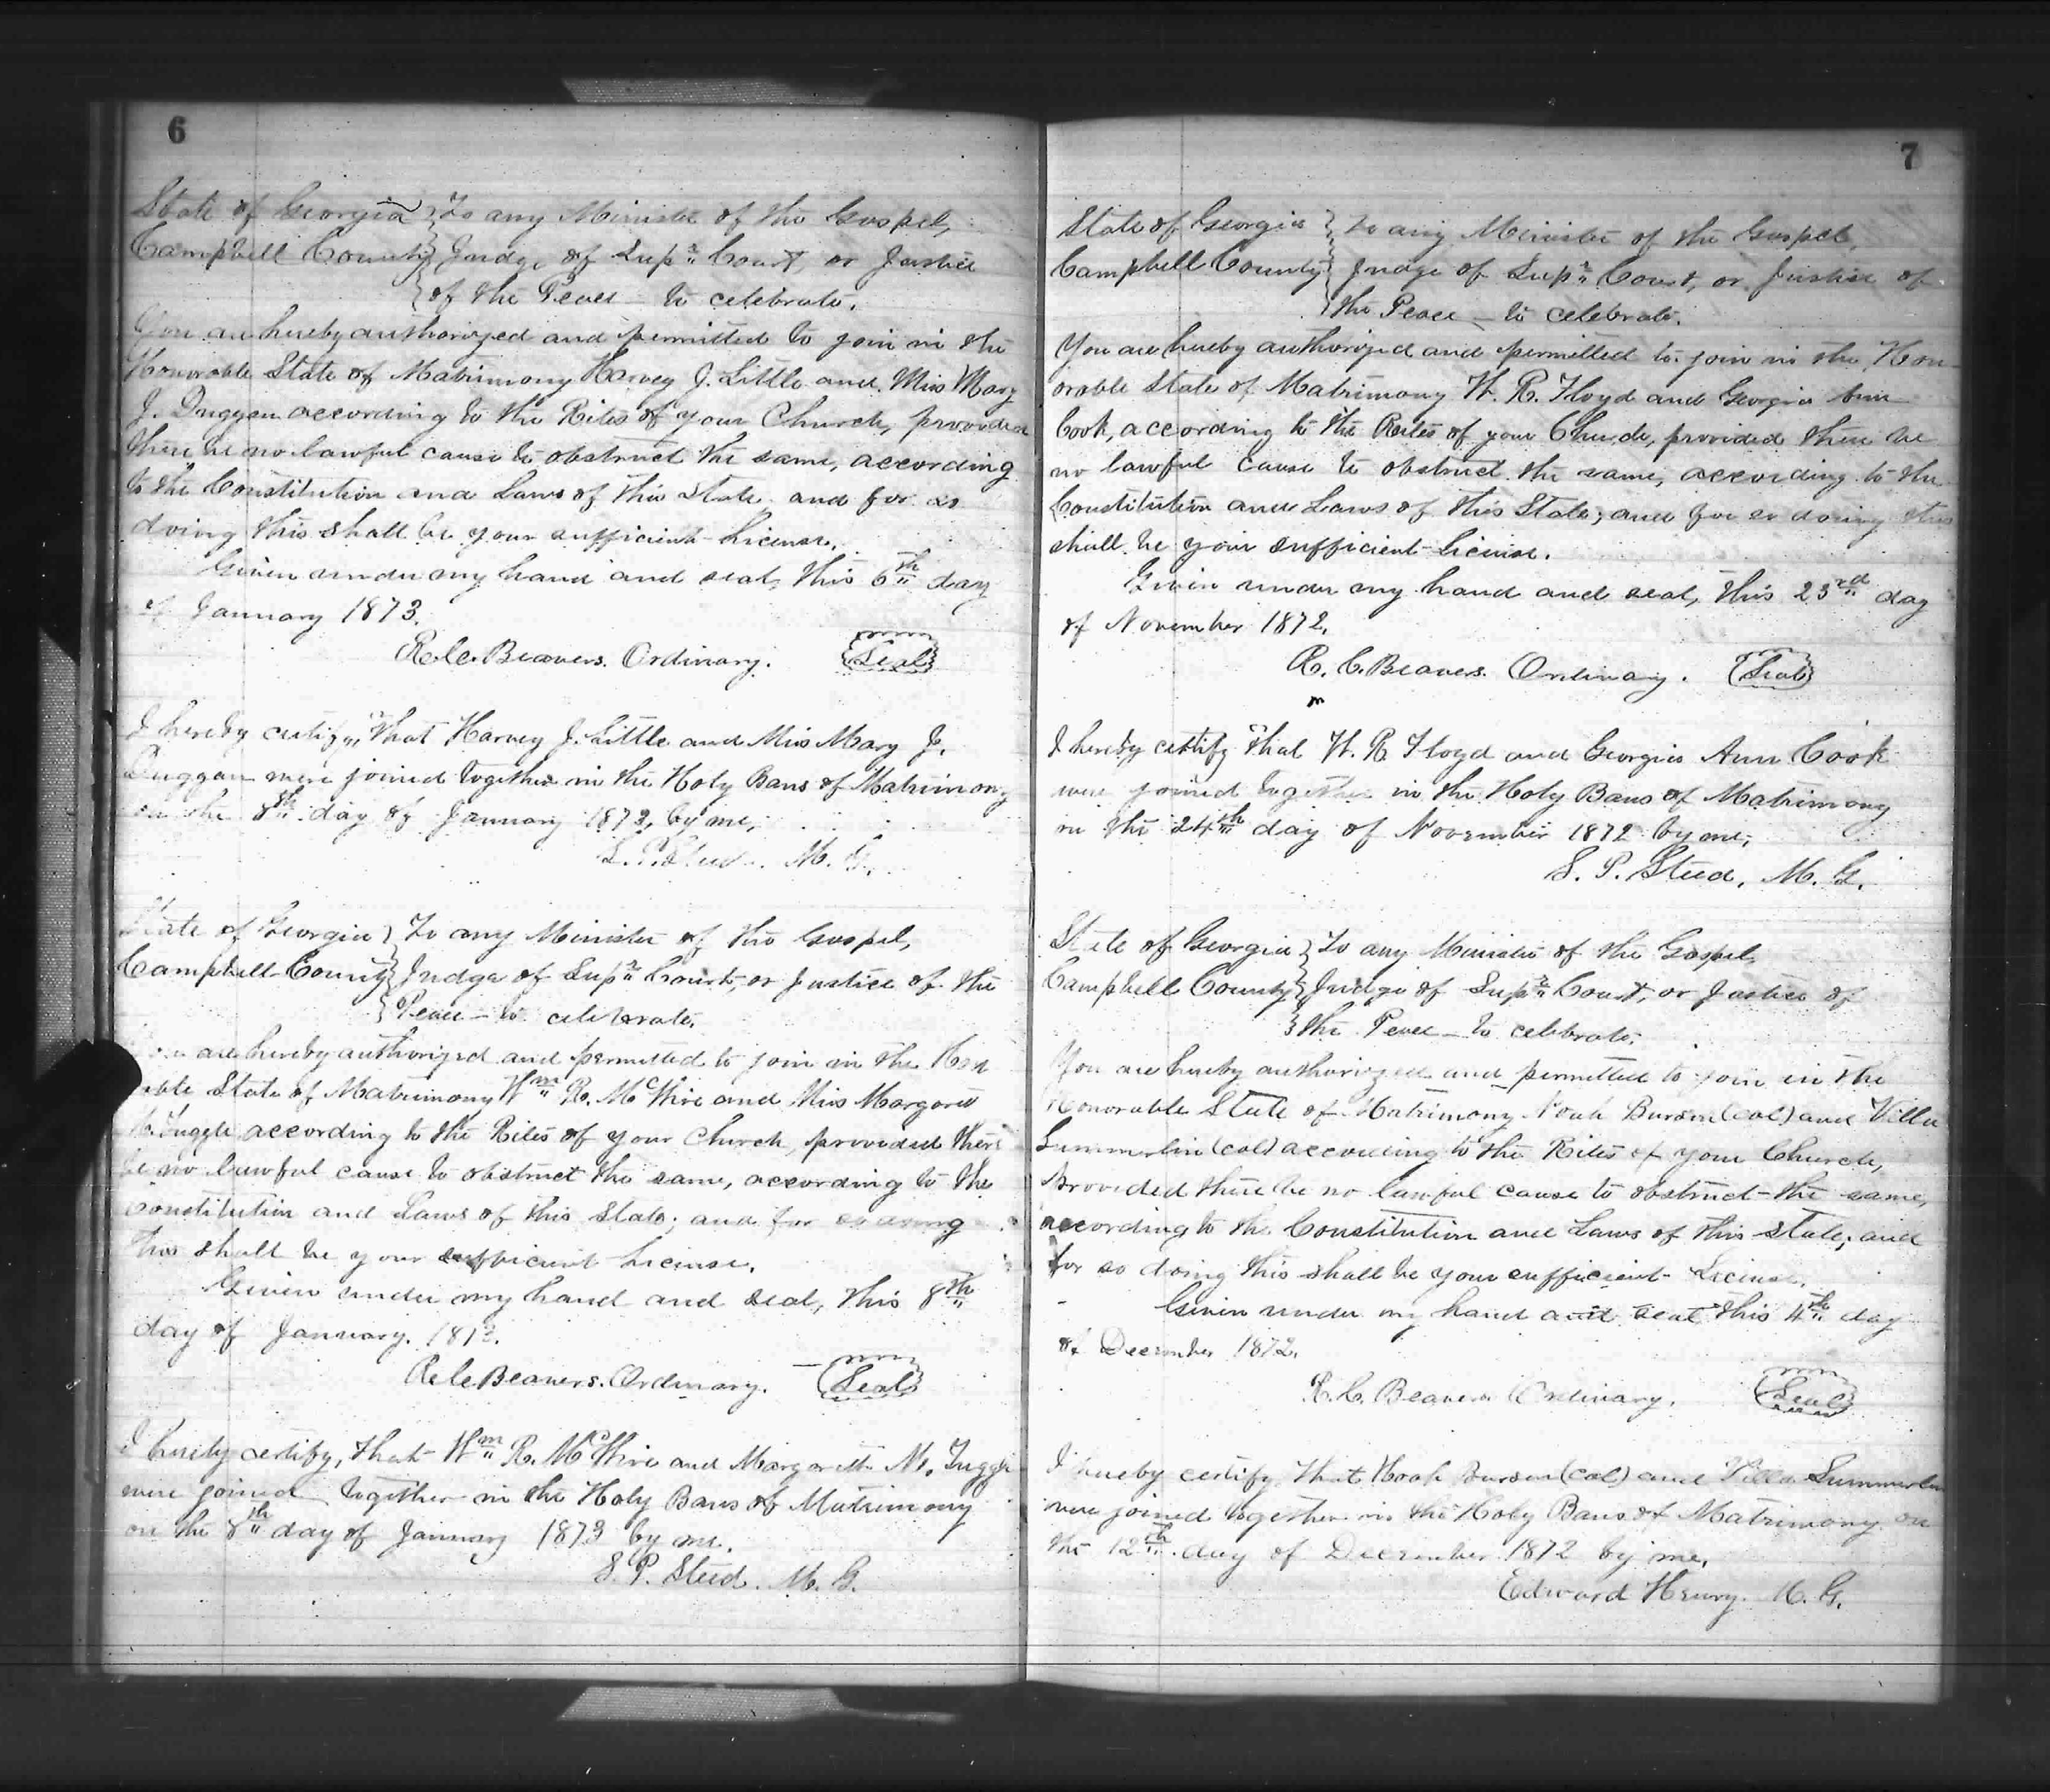 6
State of Georgia } To any Minister of the Gospel,
Campbell County } Judge of Supr. Court, or Justice
} of the Peace – to celebrate.
You are hereby authorized and permitted to join in the
Honorable State of Matrimony Harvey J. Little and Miss Mary
J. Duggan according to the Rites of your Church, provided
there be no lawful cause to obstruct the same, according
to the Constitution and Laws of this State and for so
doing this shall be your sufficient License.
Given under my hand and seal, this 6th day
of January 1873.
R. C. Beavers. Ordinary. Seal
I hereby certify, That Harvey J. Little and Miss Mary J.
Duggan were joined together in the Holy Bans of Matrimony
on the 8th day of January 1873, by me,
S. P. Steed. M. G.
State of Georgia } To any Minister of the Gospel,
Campbell County } Judge of Supr. Court, or Justice of the
} Peace – to celebrate.
are hereby authorized and permitted to join in the Hon
able State of Matrimony Wm R. McWire and Miss Margaret
Tuggle according to the Rites of your Church, provided there
be no lawful cause to obstruct the same, according to the
Constitution and Laws of this State; and for so doing
this shall be your sufficient License.
Given under my hand and seal, this 8th
day of January. 1873.
R. C. Beavers. Ordinary. Seal
I hereby certify, that Wm R. McWire and Margarett M. Tuggle
were joined together in the Holy Bans of Matrimony
on the 8th day of January 1873 by me.
S. P. Steed. M. G.
7
State of Georgia } To any Minister of the Gospel,
Campbell County } Judge of Supr. Court, or Justice of
} the Peace – to celebrate.
You are hereby authorized and permitted to join in the Hon
orable State of Matrimony W. R. Floyd and Georgia Ann
Cook, according to the Rites of your Church, provided there be
no lawful cause to obstruct the same, according to the
Constitution and Laws of this State; and for so doing this
shall be your sufficient License.
Given under my hand and seal, this 23rd day
of November 1872.
R. C. Beavers. Ordinary. Seal
I hereby certify that W. R. Floyd and Georgia Ann Cook
were joined together in the Holy Bans of Matrimony
on the 24th day of November 1872 by me,
S. P. Steed, M. G.
State of Georgia } To any Minister of the Gospel,
Campbell County } Judge of Supr. Court, or Justice of
} the Peace – to celebrate.
You are hereby authorized and permitted to join in the
Honorable State of Matrimony Noah Burson (col) and Villa
Summerlin (col) according to the Rites of your Church,
Provided there be no lawful cause to obstruct the same,
according to the Constitution and Laws of this State; and
for so doing this shall be your sufficient License.
Given under my hand and seal this 4th day
of December 1872.
R. C. Beavers Ordinary. Seal
I hereby certify that Noah Burson (col) and Villa Summerlin
were joined together in the Holy Bans of Matrimony on
the 12th day of December 1872 by me,
Edward Henry. M. G.